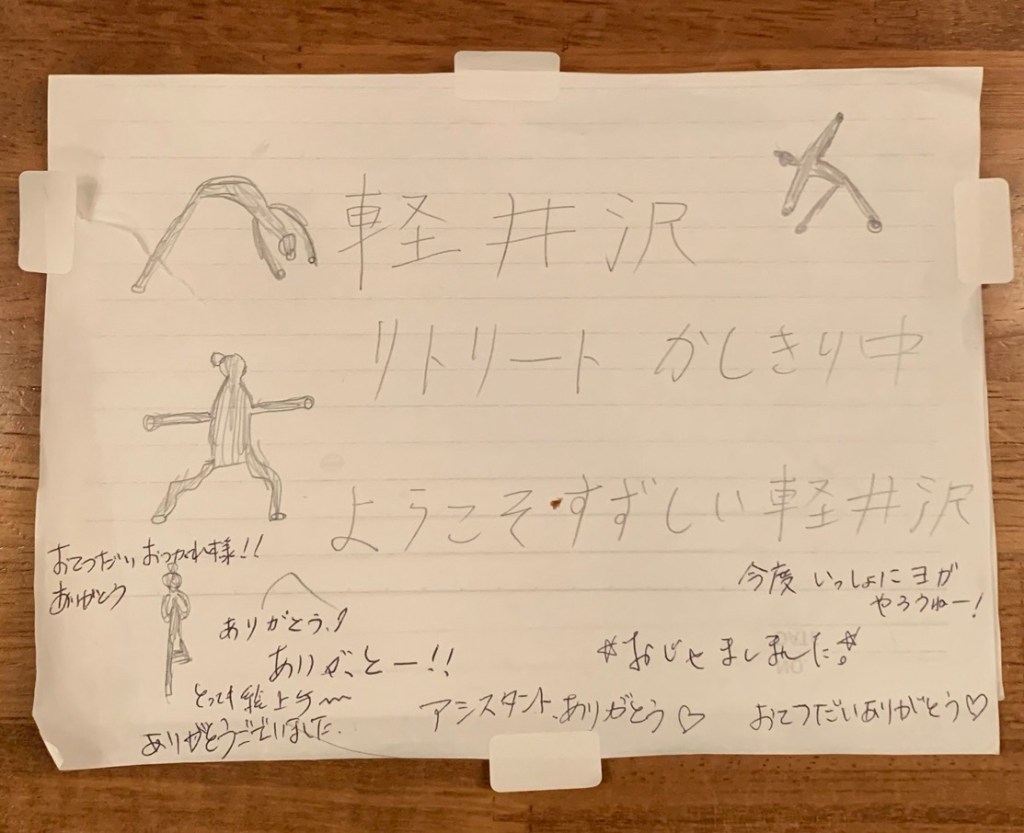 軽井沢
リトリート かしきり中
ようこそ・すずしい軽井沢
おてつだいおつかれ様!!
ありがとう
今度 いっしょにヨガ
やろうねー!
ありがとう!
ありがとー!!
☆おじゃましました☆
とっても絵上手〜
ありがとうございました.
アシスタント、ありがとう♡
おてつだいありがとう♡